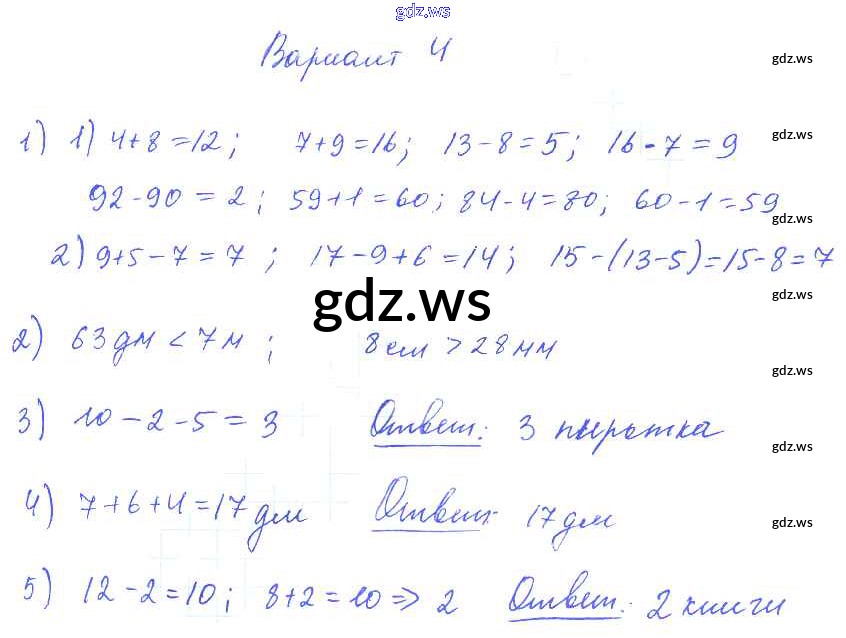 gdz.ws
Вариант 4
gdz.ws
1) 1) 4+8=12; 7+9=16; 13-8=5; 16-7=9
gdz.ws
92-90=2; 59+1=60; 84-4=80; 60-1=59
gdz.ws
2) 9+5-7=7; 17-9+6=14; 15-(13-5)=15-8=7
gdz.ws
gdz.ws
2) 63 дм < 7 м; 8 см > 28 мм
gdz.ws
3) 10-2-5=3 Ответ: 3 пирожка
gdz.ws
4) 7+6+4=17 дм Ответ: 17 дм
gdz.ws
5) 12-2=10; 8+2=10 => 2 Ответ: 2 книги